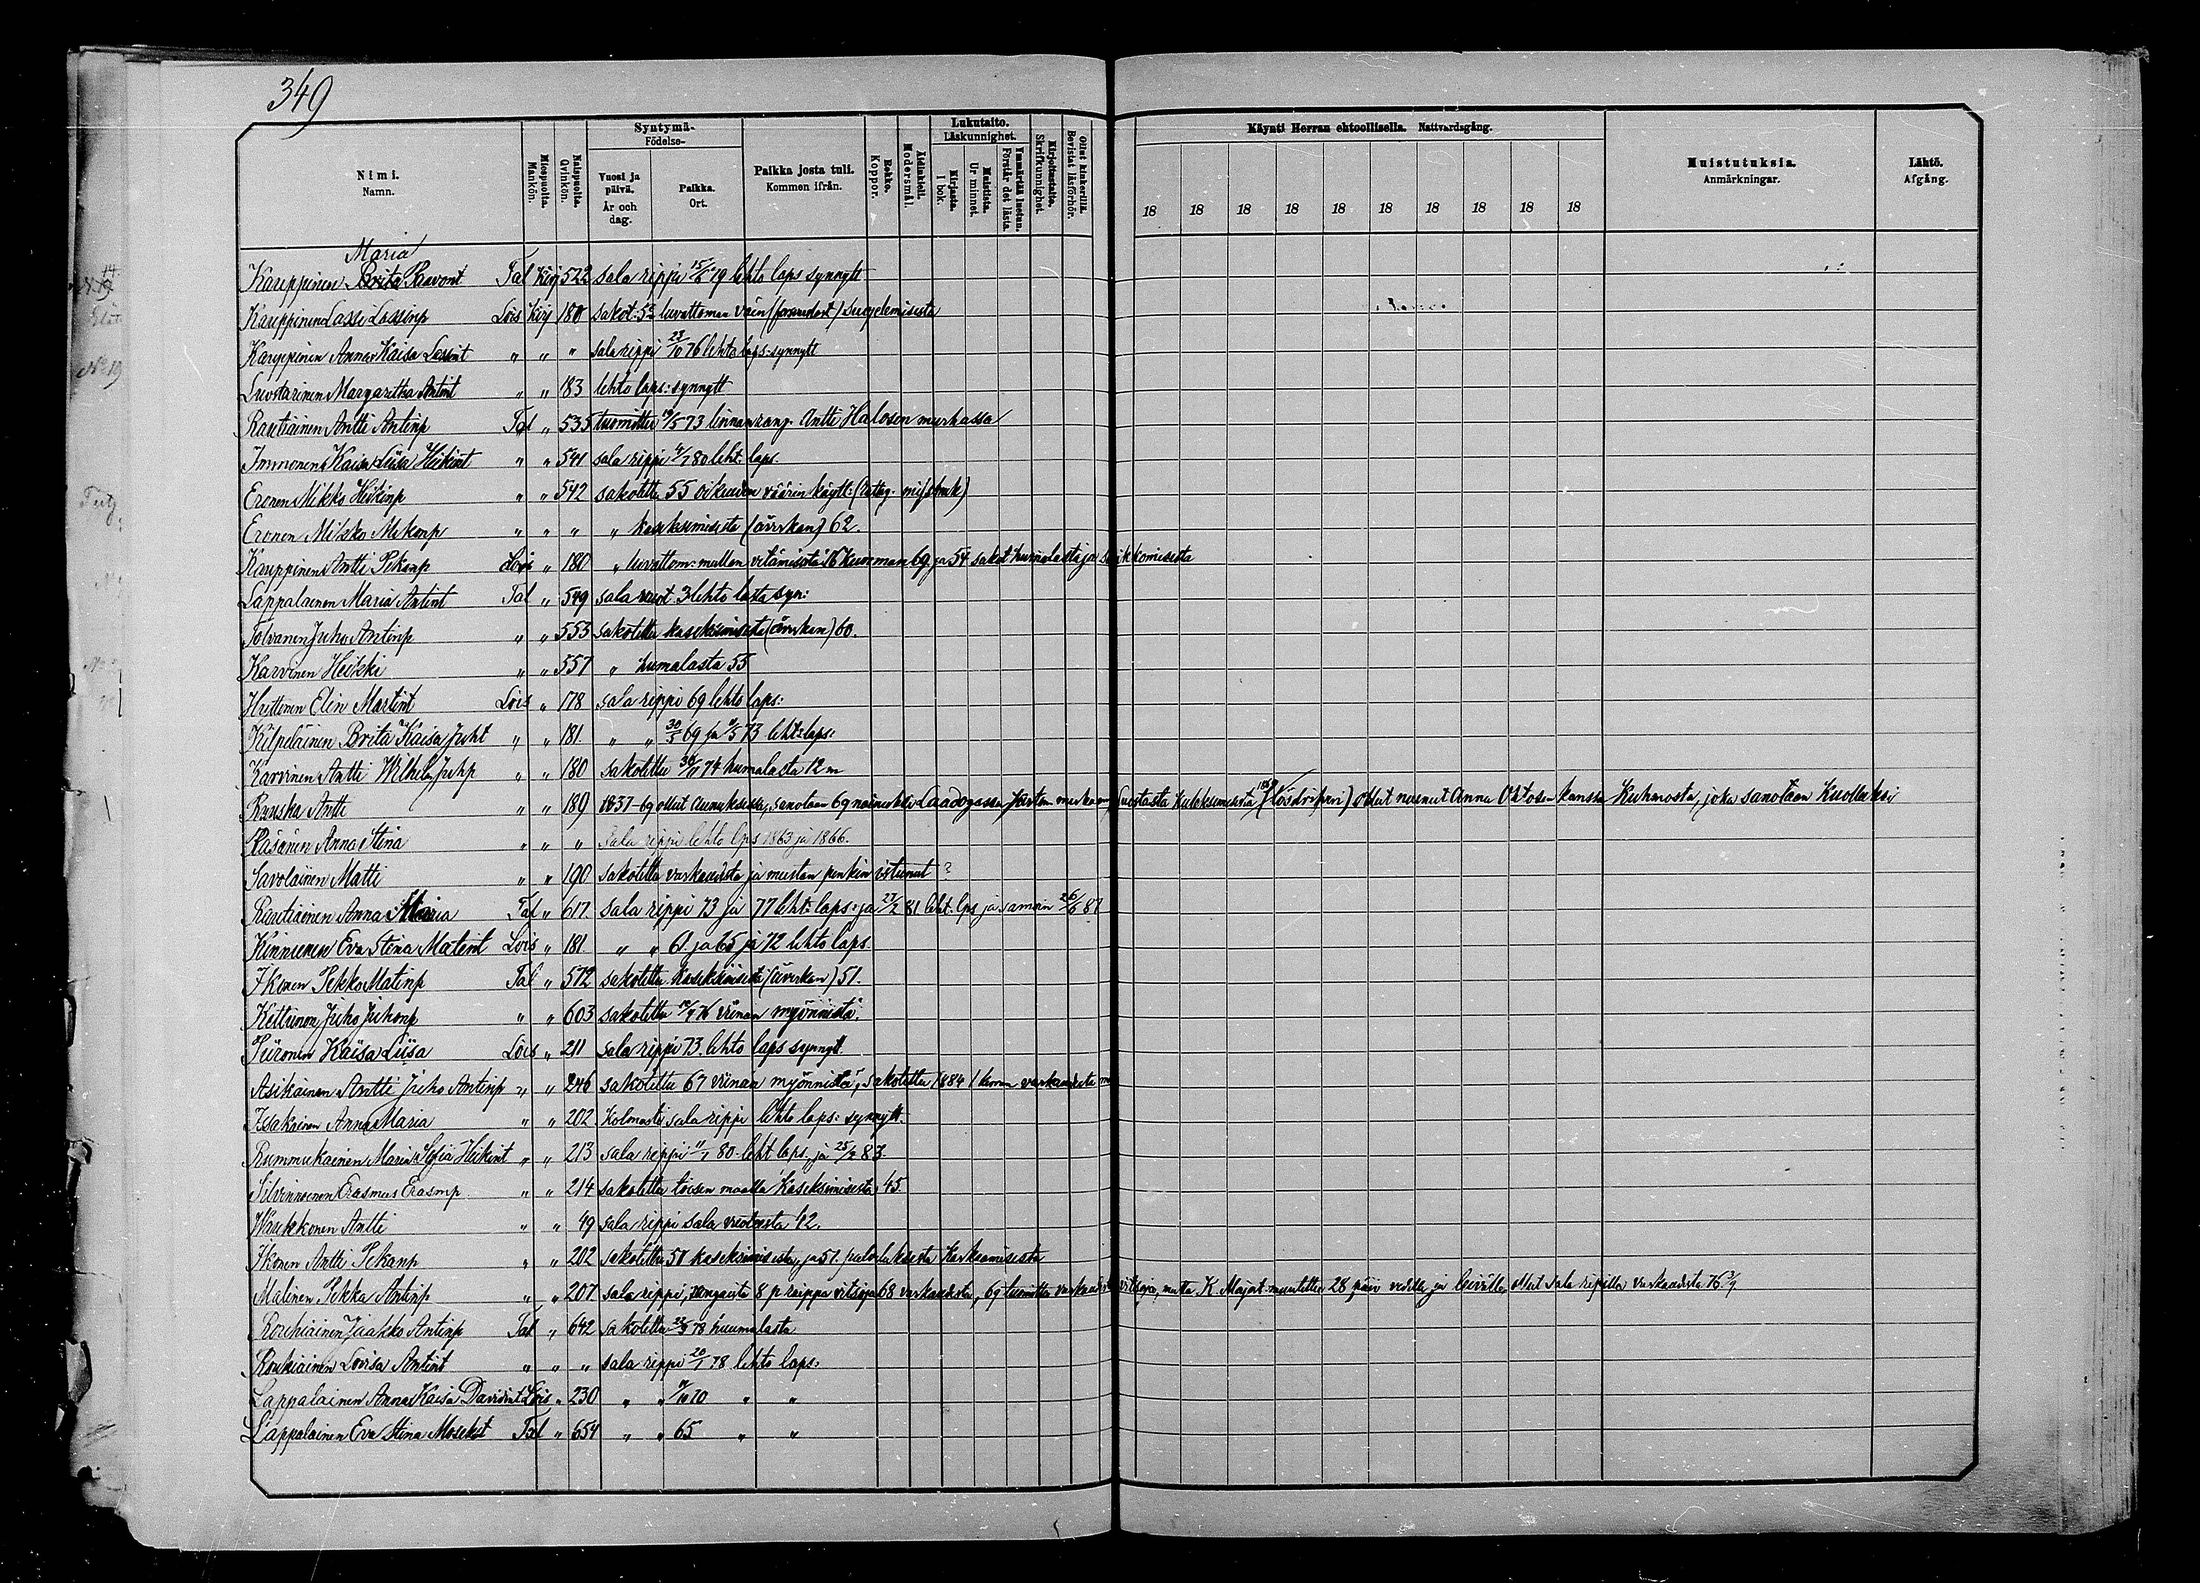 349
Nimi. Namn.
Miespuolia. Mankön.
Naispuolia. Qvinkön.
Syntymä- Födelse-
Vuosi ja päivä. År och dag.
Paikka. Ort.
Paikka josta tuli. Kommen ifrån.
Rokko. Koppor.
Äidinkieli. Modersmål.
Lukutaito. Läskunnighet.
Kirjasta. I bok.
Muistista. Ur minnet.
Ymmärtää luetun. Förstår det lästa.
Kirjoitustaito. Skrifkunnighet.
Ollut kinkerillä. Bevistat läsförhör.
Käynti Herran ehtoollisella. Nattvardsgång.
18 18 18 18 18 18 18 18 18 18
Muistutuksia. Anmärkningar.
Lähtö. Afgång.
Maria
Kauppinen Brita Paavont Tal Kirj 522 sala rippi 15/6 19 lehto laps synnytt
Kauppinen Lasse Lassinp Lois Kirj 180 sakot. 53 luvattoman väin (forsvarlöst) suojelemisesta
Kauppinen Anna Kaisa Lassint " " " sala rippi 23/10 76 lehto laps: synnytt
Luostarinen Margaretha Antint " " 183 lehto laps: synnytt
Rautiainen Antti Antinp Tal " 535 tuomittu 19/5 73 linnan rang. Antti Halosen murhassa
Immonen Kaisa Liisa Heikint " " 541 sala rippi 4/1 80 leht. laps.
Eronen Mikko Heikinp " " 542 sakotettu 55 oikeuden väärin käytt:
Eronen Mikko Mikonp " " " " kaskeamisesta (åverkan) 62.
Kauppinen Antti Pekanp Lois " 180 " luvattom: mullan vetämisestä 16 kuorman 69 ja 54 sakot humalasta ja
Lappalainen Maria Antint Tal " 549 sala vuot. 3 lehto lasta syn:
Tolvanen Juho Antinp " " 553 sakotettu kaskeamisesta (åverkan) 60.
Karvinen Heikki " " 557 " humalasta 55
Huttonen Elin Martint Lois " 178 sala rippi 69 lehto laps:
Kilpeläinen Brita Kaisa Juht " " 181 " " 30/5 69 ja 9/5 73 leht: laps:
Karvinen Antti Wilhelm Juhp " " 180 sakotettu 30/11 74 humalasta 12 m
Ruuska Antti " " 189 1837-69 ollut Aunuksessa, sanotaan 69 naineeksi Laadogassa ollut nainut Anna Ohtosen kanssa Kuhmosta, joka sanotaan Kuolleeksi
Räsänen Anna Stina " " " Sala rippi lehto lps 1863 ja 1866.
Savolainen Matti " " 190 sakotettu varkaudesta ja mustan penkin istunut ?
Rautiainen Anna Maria Tal " 617 sala rippi 73 ja 77 leht: laps: ja 27/2 81 leht. lps ja samoin 26/6 87
Kinnunen Eva Stina Matint Lois " 181 " " 61 ja 65 ja 72 lehto laps.
Ikonen Pekka Matinp Tal " 572 sakotettu kaskeamisesta (åverkan) 51.
Kettunen Juho Juhonp " " 603 sakotettu 10/9 76 viinan myönnistä.
Piironen Kaisa Liisa Lois " 211 sala rippi 73 lehto laps synnytt.
Asikainen Antti Juho Antinp " " 246 sakotettu 67 viinan myönnistä, sakotettu 1884 1 kerran varkaudesta
Issakainen Anna Maria " " 202 Kolmasti sala rippi lehto laps: synnytt.
Rummukainen Maria Sofia Heikint " " 213 sala rippi 11/1 80 leht laps. ja 25/2 83.
Silvennoinen Erasmus Erasmp " " 214 sakotettu toisen maalla kaskeamisesta 45.
Waukkonen Antti " " 49 sala rippi sala vuoteesta 42.
Ikonen Antti Pekanp " " 202 sakotettu 50 kaskeamisesta, ja 51
Malinen Pekka Antinp " " 207 sala rippi, rangaistu 8 p raippa vitsoja 68 varkaudesta, 69 tuomittu varkaudesta vitsoja, mutta K. Majest. muutettu 28 päiv. vedelle ja leivälle, ollut sala ripillä varkaudesta 76 3/9
Roukiainen Jaakko Antinp Tal " 642 sakotettu 23/3 78 huumalasta
Roukiainen Lovisa Antint " " " sala rippi 20/1 78 lehto laps:
Lappalainen Anna Kaisa Davidint Lois " 230 " " 9/10 70 " "
Lappalainen Eva Stina Mosekst Tal " 654 " " 65 " "